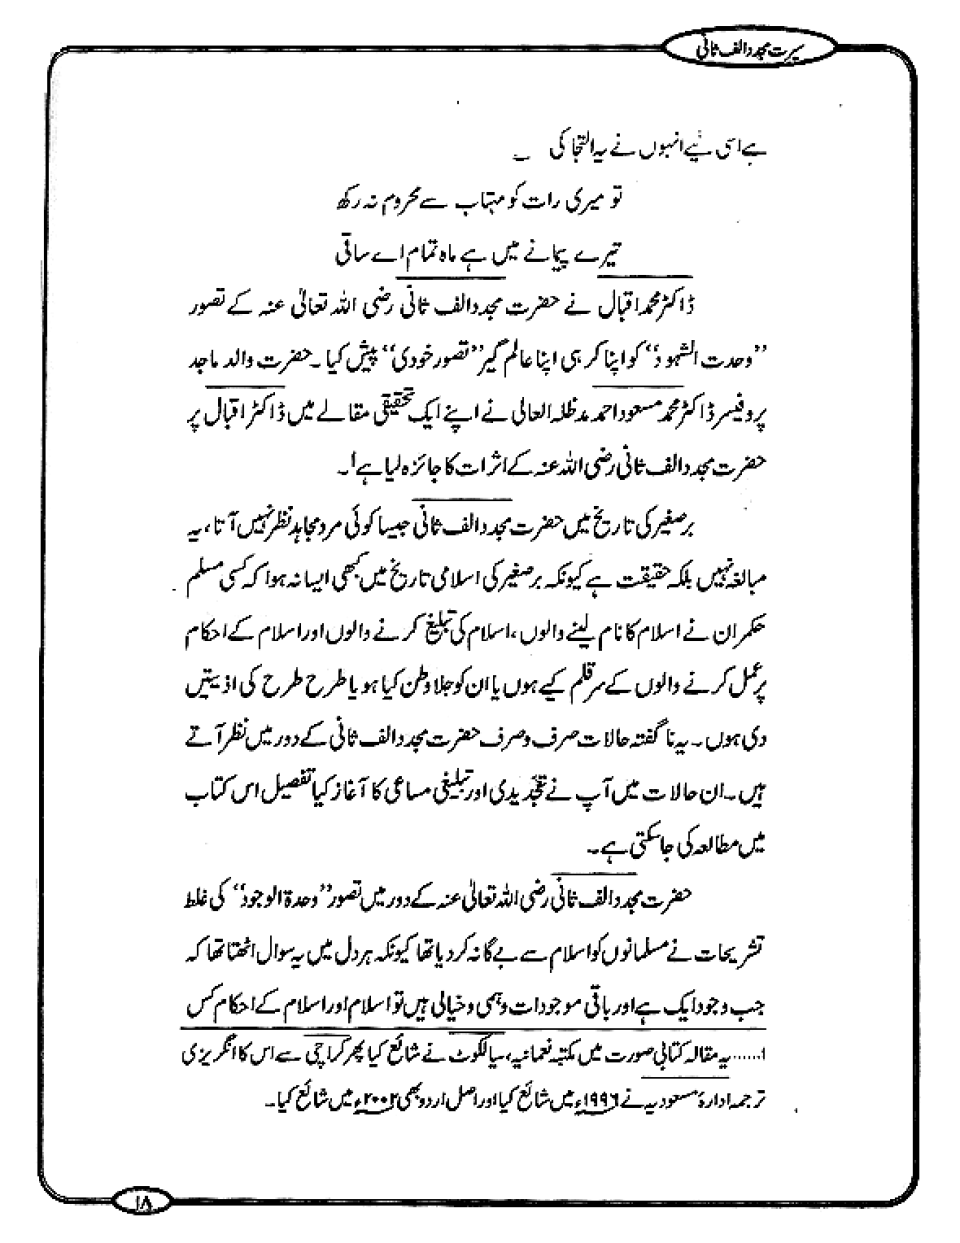 سیرت مجدد الف ثانی
ہے اسی لیے انہوں نے یہ التجا کی ؎
تو میری رات کو مہتاب سے محروم نہ رکھ
تیرے پیمانے میں ہے ماہ تمام اے ساقی
ڈاکٹر محمد اقبال نے حضرت مجدد الف ثانی رضی اللہ تعالیٰ عنہ کے تصور
”وحدت الشہود“ کو اپنا کر ہی اپنا عالم گیر ”تصور خودی“ پیش کیا۔ حضرت والد ماجد
پروفیسر ڈاکٹر محمد مسعود احمد مدظلہ العالی نے اپنے ایک تحقیقی مقالے میں ڈاکٹر اقبال پر
حضرت مجدد الف ثانی رضی اللہ عنہ کے اثرات کا جائزہ لیا ہے۱۔
برصغیر کی تاریخ میں حضرت مجدد الف ثانی جیسا کوئی مرد مجاہد نظر نہیں آتا، یہ
مبالغہ نہیں بلکہ حقیقت ہے کیونکہ برصغیر کی اسلامی تاریخ میں کبھی ایسا نہ ہوا کہ کسی مسلم
حکمران نے اسلام کا نام لینے والوں، اسلام کی تبلیغ کرنے والوں اور اسلام کے احکام
پر عمل کرنے والوں کے سر قلم کیے ہوں یا ان کو جلا وطن کیا ہو یا طرح طرح کی اذیتیں
دی ہوں۔ یہ نا گفتہ حالات صرف و صرف حضرت مجدد الف ثانی کے دور میں نظر آتے
ہیں۔ ان حالات میں آپ نے تجدیدی اور تبلیغی مساعی کا آغاز کیا تفصیل اس کتاب
میں مطالعہ کی جاسکتی ہے۔
حضرت مجدد الف ثانی رضی اللہ تعالیٰ عنہ کے دور میں تصور ”وحدۃ الوجود“ کی غلط
تشریحات نے مسلمانوں کو اسلام سے بے گانہ کر دیا تھا کیونکہ ہر دل میں یہ سوال اٹھتا تھا کہ
جب وجود ایک ہے اور باقی موجودات وہمی و خیالی ہیں تو اسلام اور اسلام کے احکام کس
۱......یہ مقالہ کتابی صورت میں مکتبہ نعمانیہ، سیالکوٹ نے شائع کیا پھر کراچی سے اس کا انگریزی
ترجمہ ادارۂ مسعودیہ نے ۱۹۹۶ء میں شائع کیا اور اصل اردو بھی ۲۰۰۲ء میں شائع کیا۔
۱۸